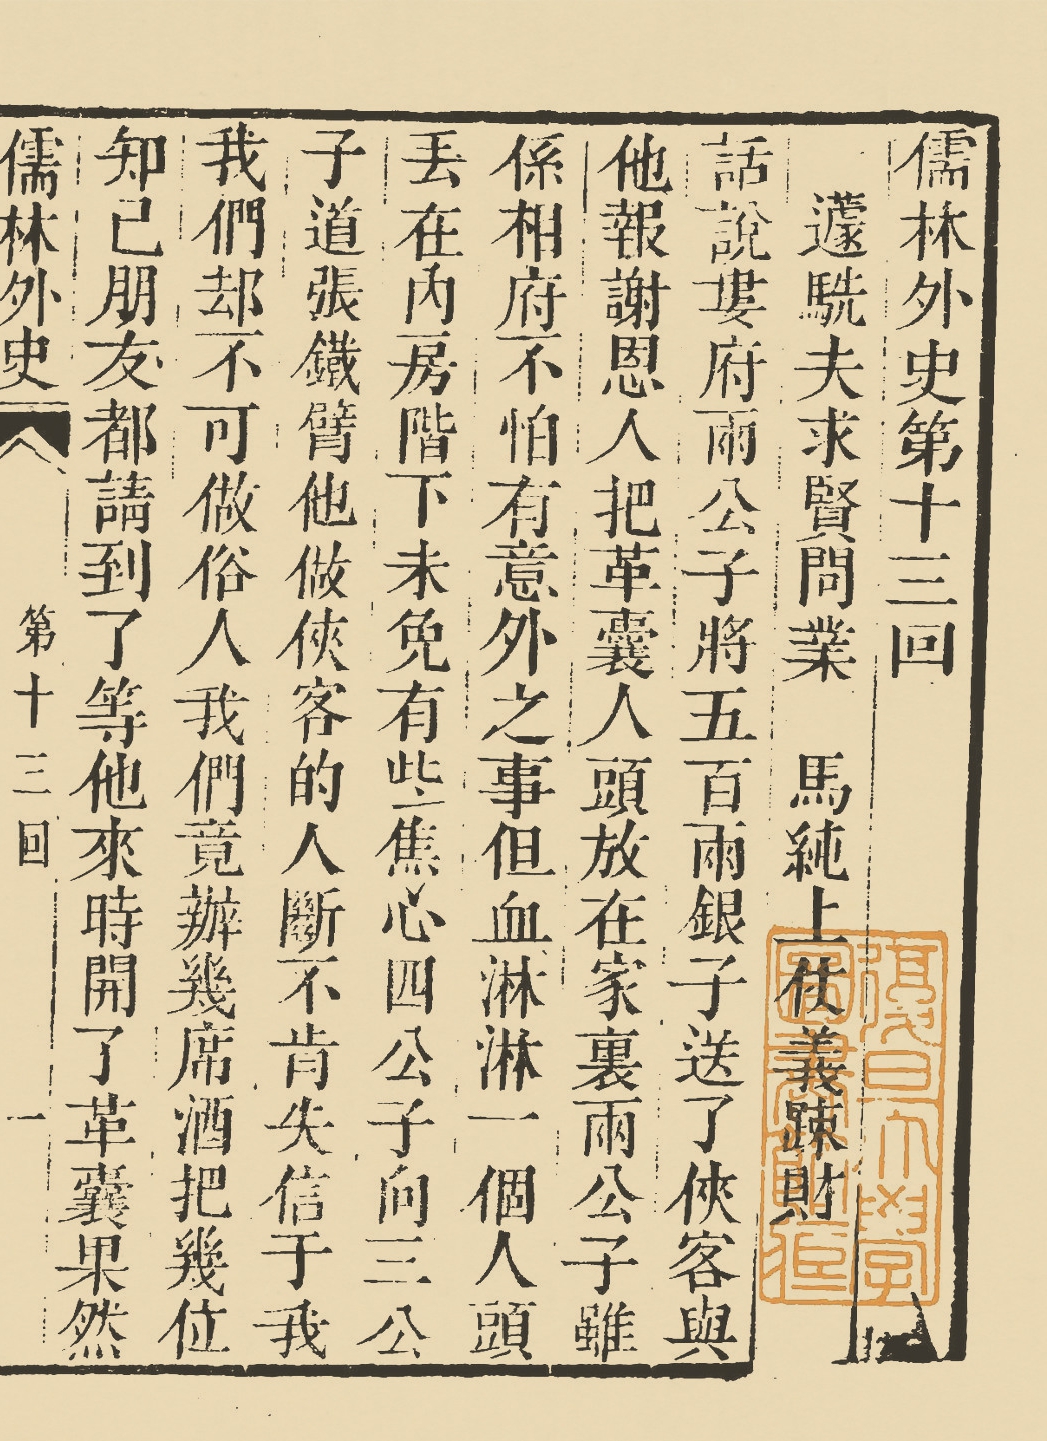 儒林外史第十三回
蘧駪夫求賢問業　馬純上仗義疎財
話說婁府兩公子將五百兩銀子送了俠客與
他報謝恩人把革囊人頭放在家裏兩公子雖
係相府不怕有意外之事但血淋淋一個人頭
丢在內房階下未免有些焦心四公子向三公
子道張鐵臂他做俠客的人斷不肯失信于我
我們却不可做俗人我們竟辦幾席酒把幾位
知己朋友都請到了等他來時開了革囊果然
儒林外史
第十三回
一